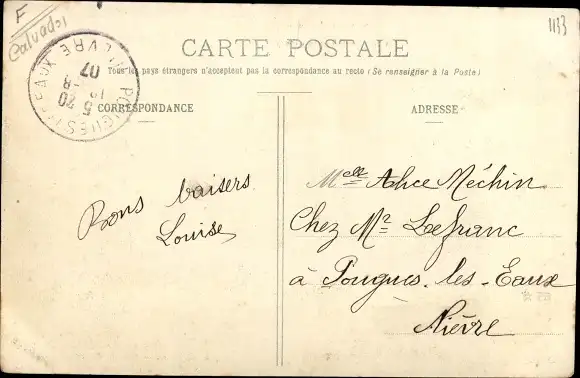 F
Calvados
1133
CARTE POSTALE
Tous les pays étrangers n'acceptent pas la correspondance au recto (Se renseigner à la Poste)
CORRESPONDANCE
ADRESSE
POUGUES-LES-EAUX
NIÈVRE
5 70
07
Bons baisers
Louise
Melle Alice Méchin
Chez Mr Lefranc
à Pougues-les-Eaux
Nièvre